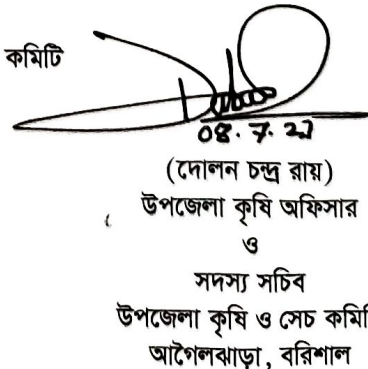 কমিটি
(দোলন চন্দ্র রায়)
উপজেলা কৃষি অফিসার
ও
সদস্য সচিব
উপজেলা কৃষি ও সেচ কমিটি
আগৈলঝাড়া, বরিশাল